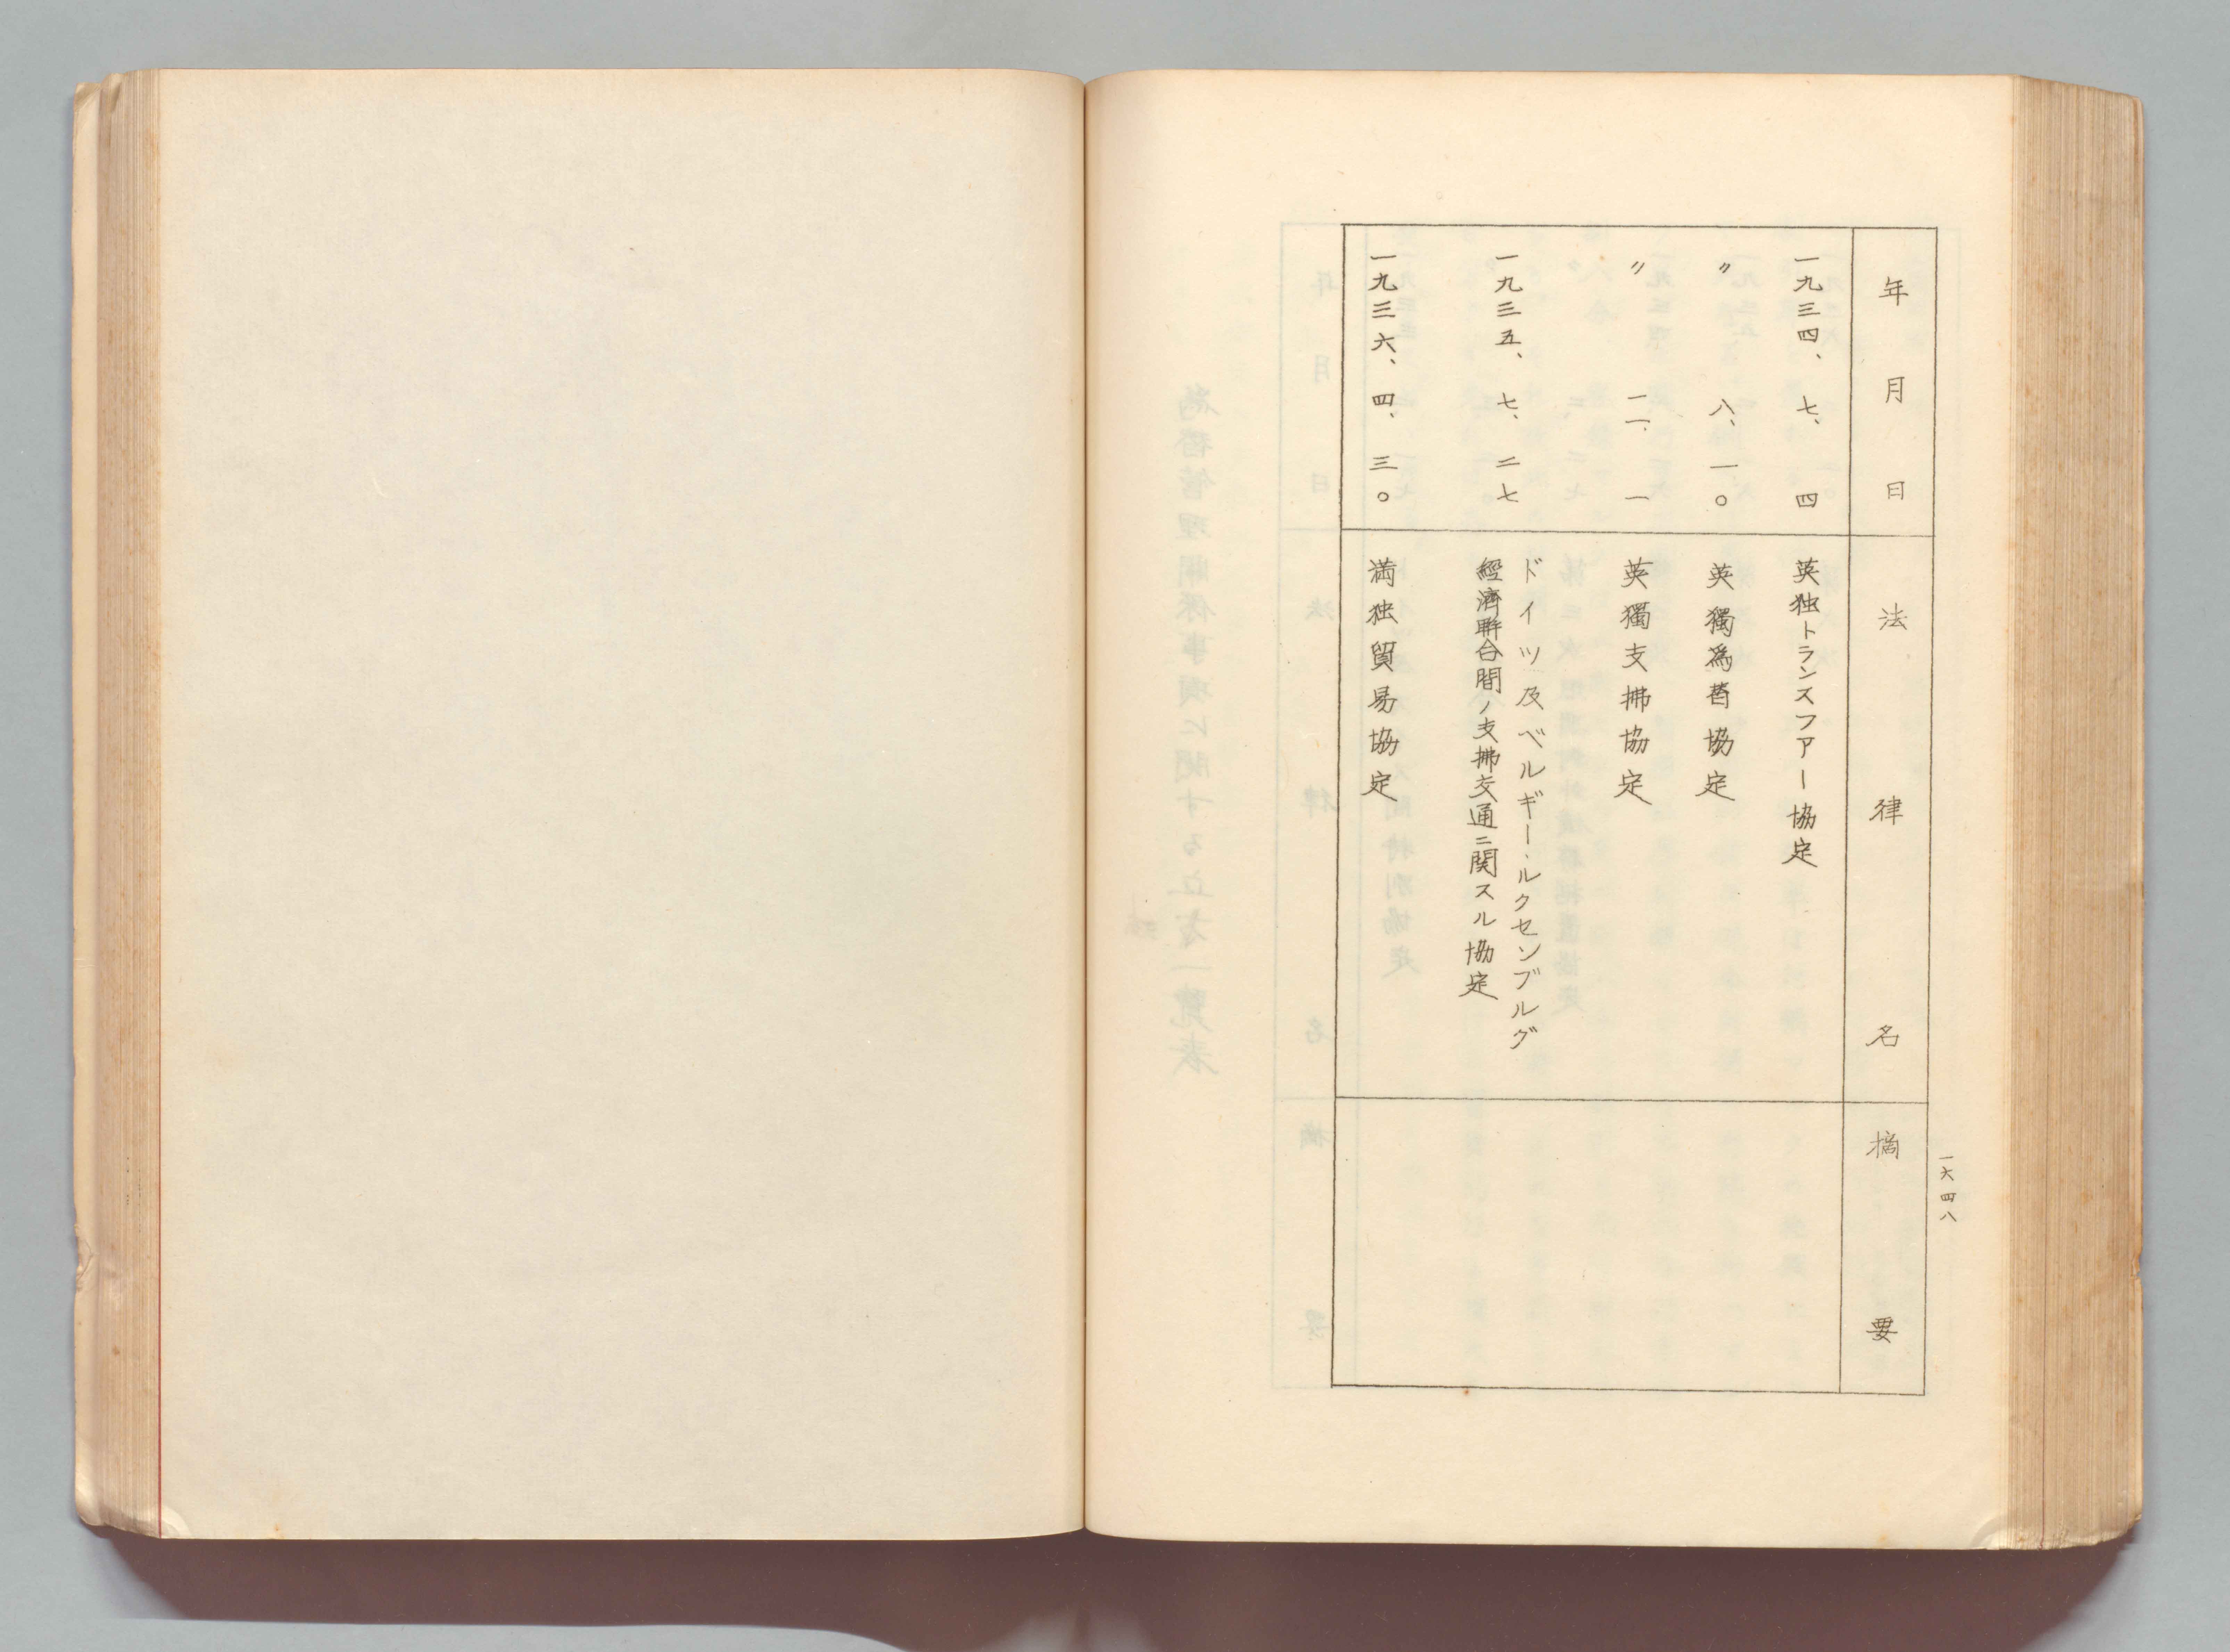 一六四八
年月日 法律名 摘要
一九三四、七、四 英独トランスファー協定
〃 八、一〇 英獨為替協定
〃 一一、一 英獨支拂協定
一九三五、七、二七 ドイツ及ベルギー・ルクセンブルグ
經濟聯合間ノ支拂交通ニ関スル協定
一九三六、四、三〇 満独貿易協定